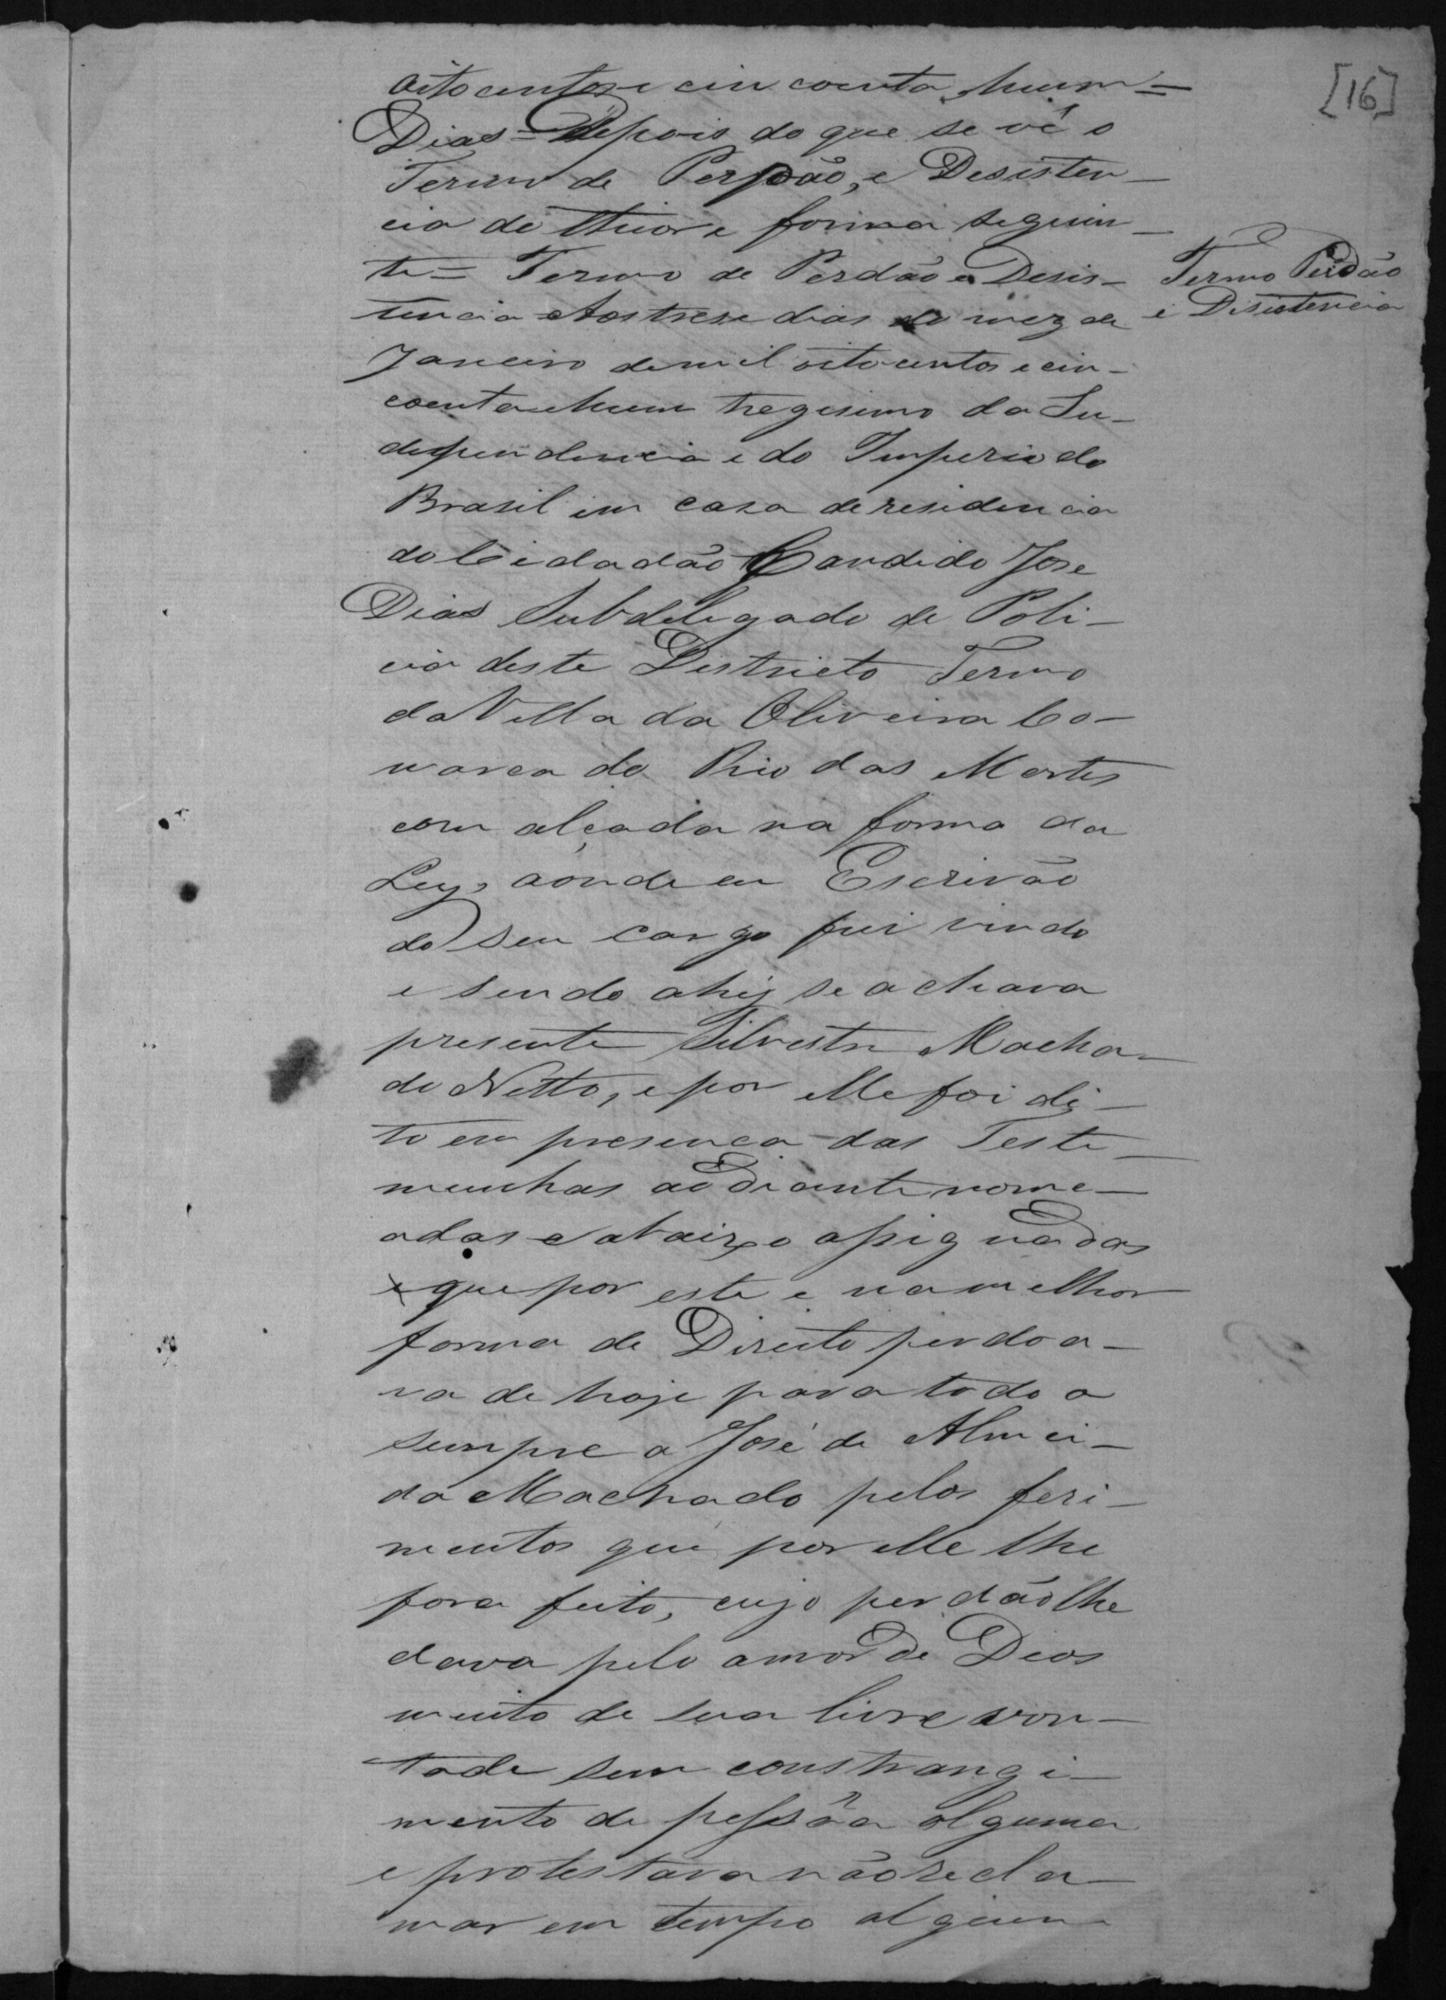 [16]
oito centos e cincoenta hum =
Dias = Depois do que se vê o
Termo de Perdão, e Desisten-
cia do theor e forma seguin-
te = Termo de Perdão e Desis-
tencia Aos trese dias do mez de
Janeiro de mil oito centos e cin-
coenta e hum tregesimo da In-
dependencia e do Imperio do
Brasil em casa de residencia
do Cidadão Candido Jose
Dias Subdelegado de Poli-
cia deste Districto Termo
da Villa da Oliveira Co-
marca do Rio das Mortes
com alçada na forma da
Ley, aonde eu Escrivão
do seu cargo fui vindo
e sendo ahy se achava
presente Silvestre Macha-
do Netto, e por elle foi di-
to em presenca das Teste-
munhas ao diante nome-
adas e abaixo assignadas
e que por este e na melhor
forma de Direito perdoa-
va de hoje para todo o
sempre a José de Almei-
da Machado pelos feri-
mentos que por elle lhe
fora feito, cujo perdão lhe
dava pelo amor de Deos
muito de sua livre von-
tade sem constrangi-
mento de pessôa alguma
e protestava não recla-
mar em tempo algum
Termo Perdão
e Disistencia